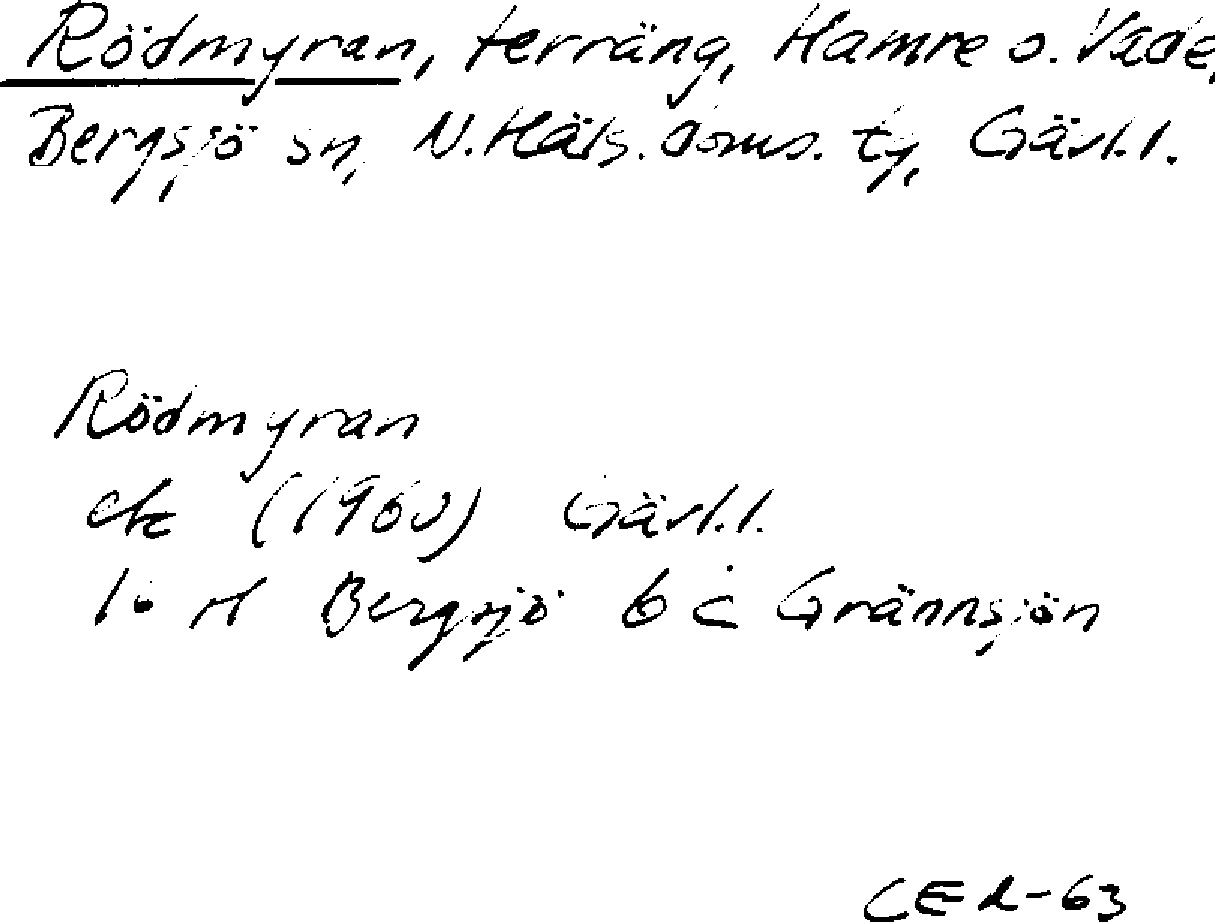 Rödmyran, terräng, Hamre o. Vade,
Bergsjö sn, N.Häls. doms. tg, Gävl.l.
Rödmyran
ek (1960) Gävl.l.
Bergsjö 6 c Grännsjön
CEL-63